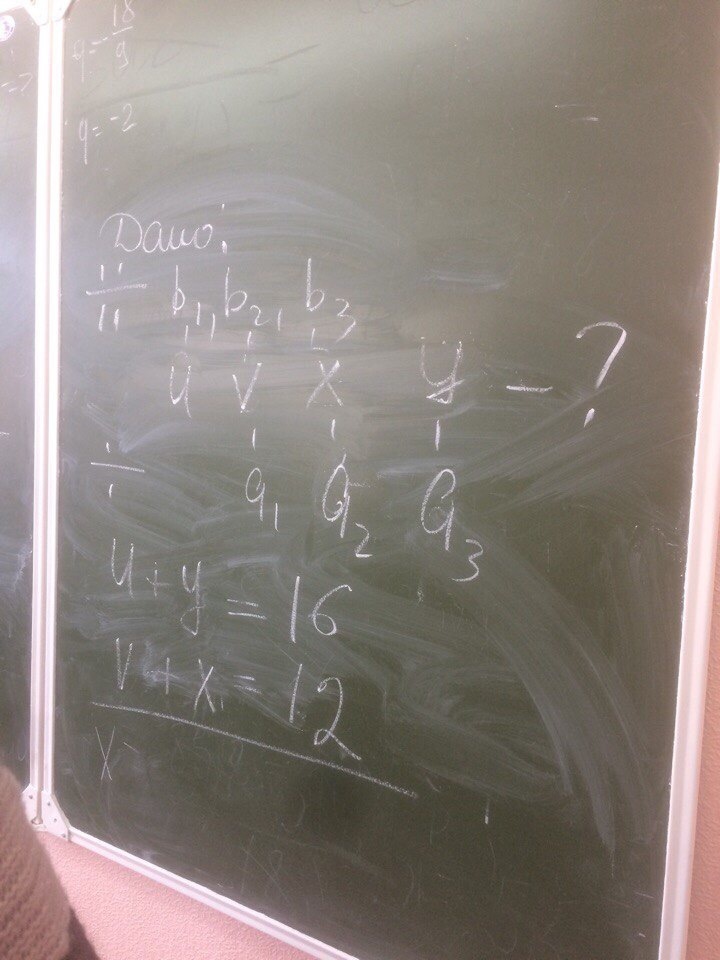 q = - 18/9
q = -2
=>
Дано:
∺ b₁, b₂, b₃
u v x y - ?
÷ a₁ a₂ a₃
u + y = 16
v + x = 12
x